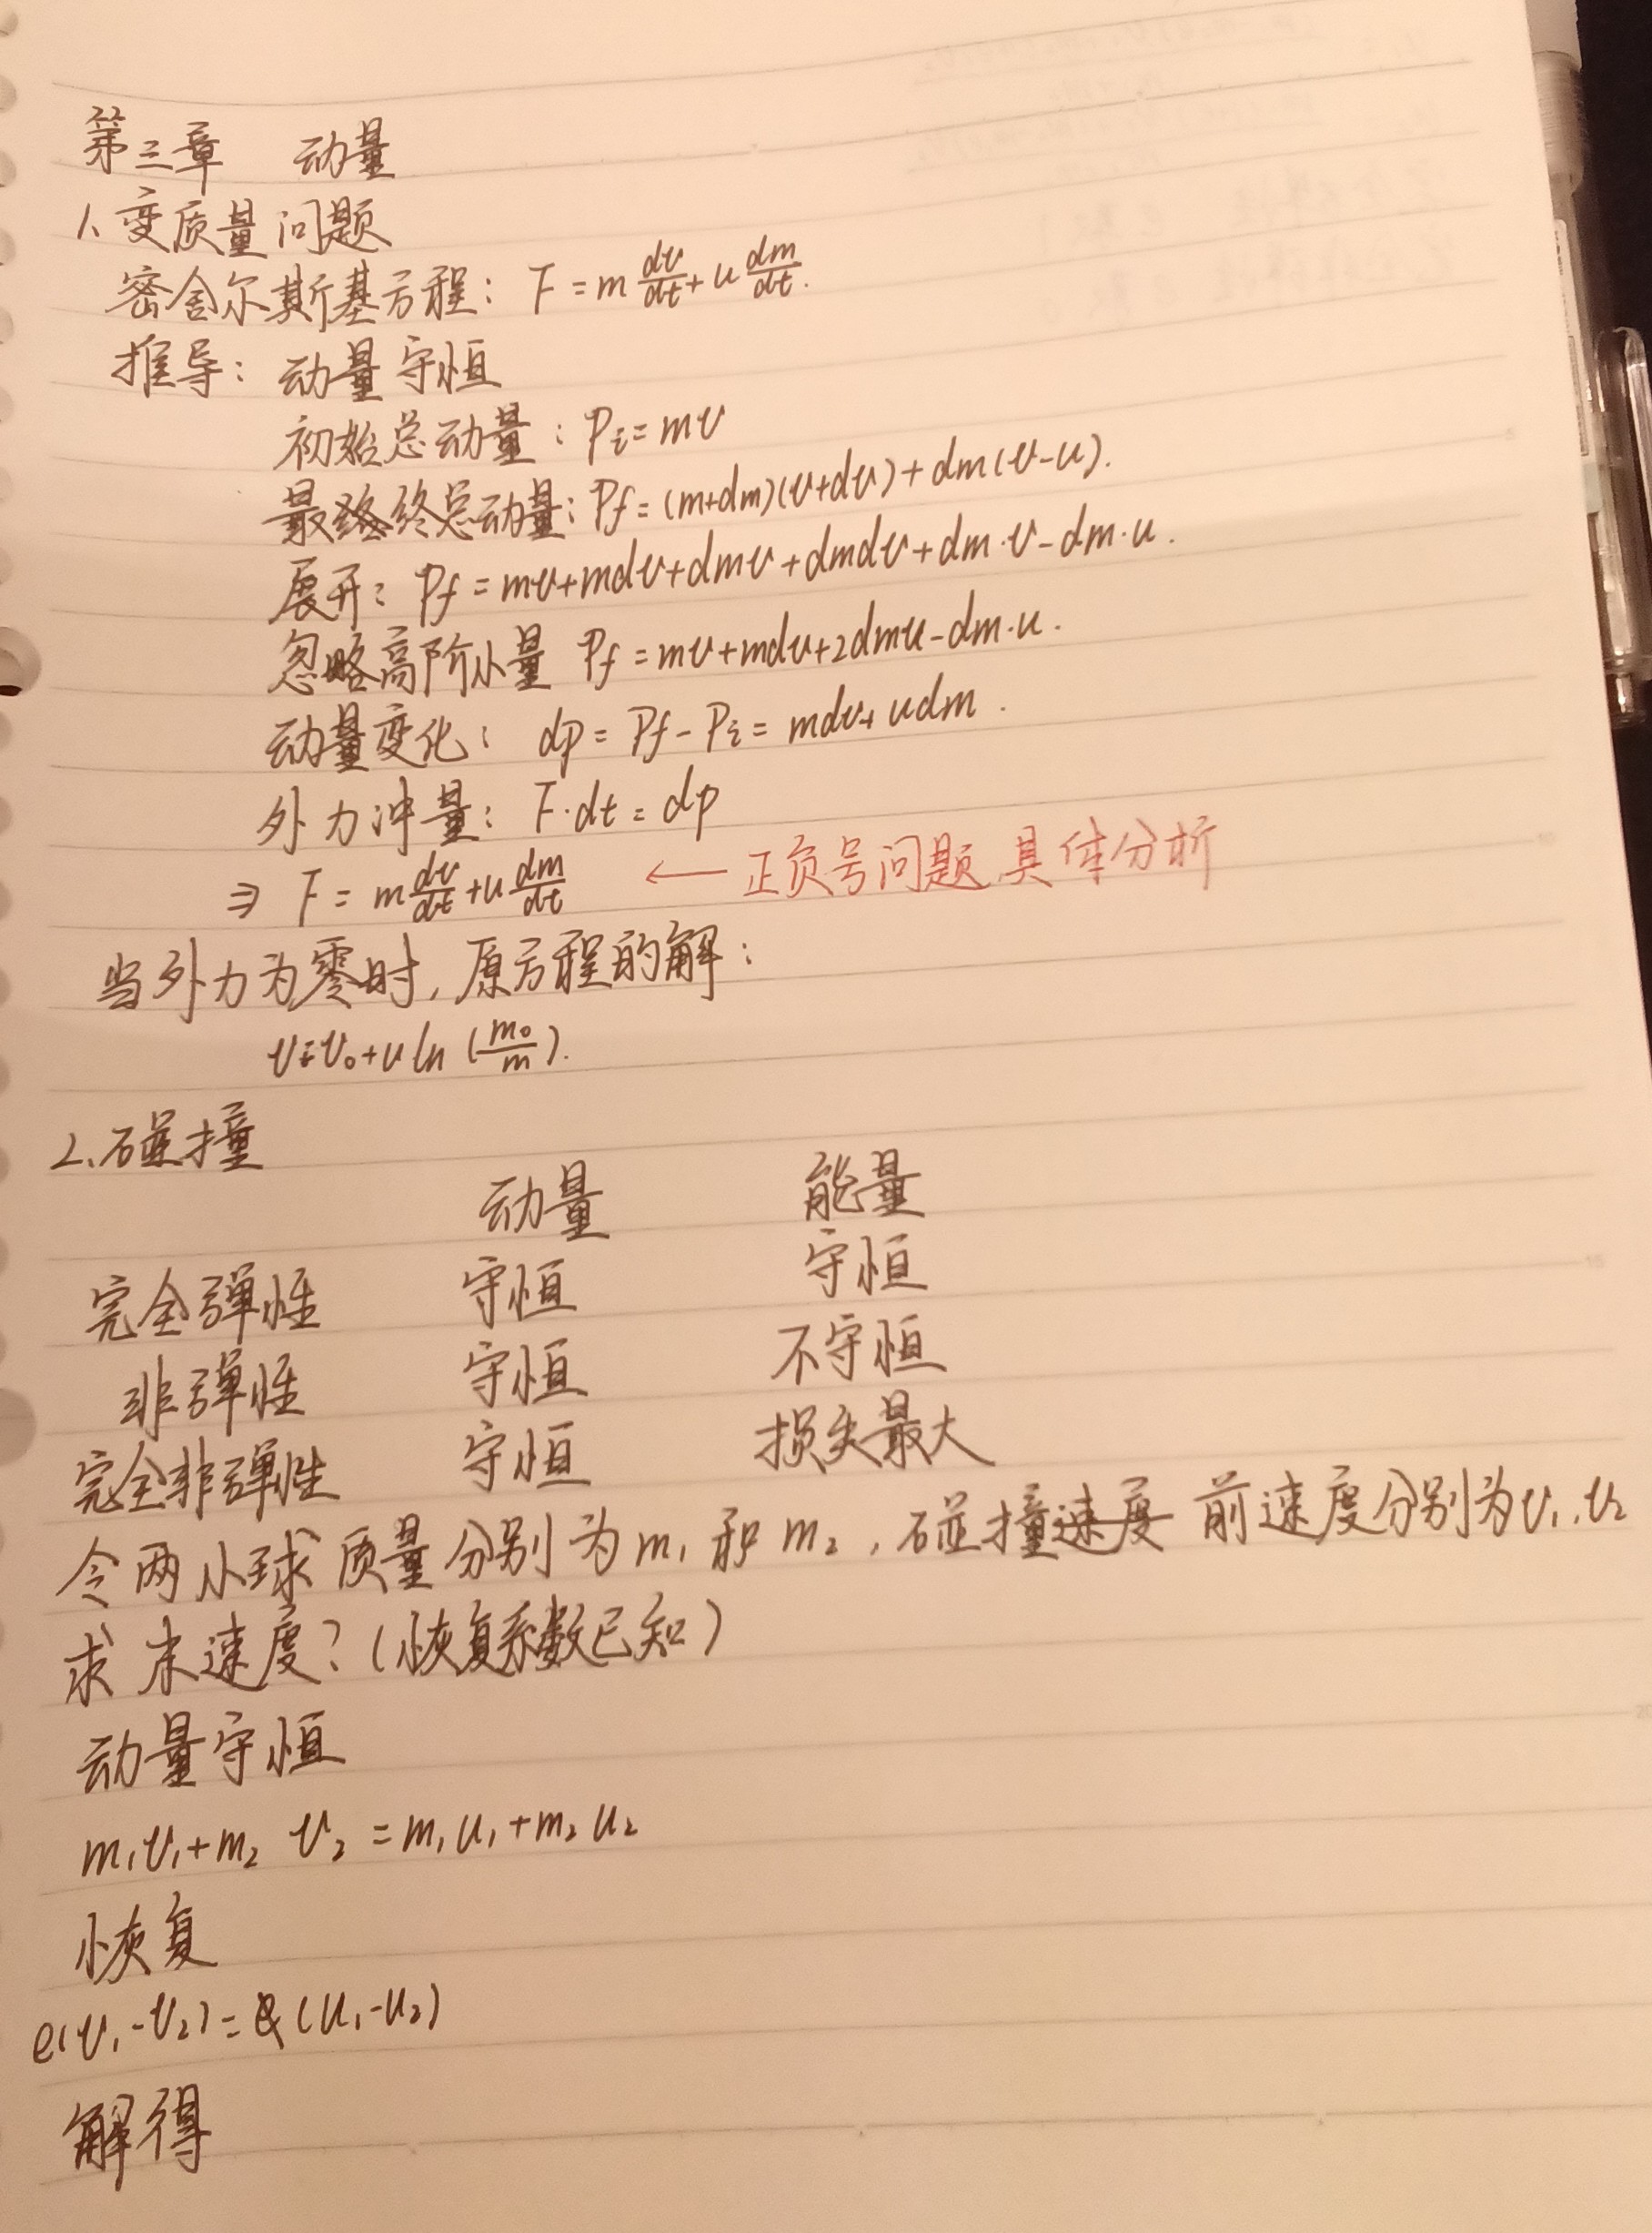 第三章 动量
1、变质量问题
密舍尔斯基方程: F = m dv/dt + u dm/dt.
推导: 动量守恒
初始总动量: Pi = mv
最终总动量: Pf = (m+dm)(v+dv) + dm(v-u).
展开: Pf = mv+mdv+dmv+dmdv+dm·v-dm·u.
忽略高阶小量 Pf = mv+mdv+2dmu-dm·u.
动量变化: dp = Pf - Pi = mdv+udm.
外力冲量: F·dt = dp
⇒ F = m dv/dt + u dm/dt ← 正负号问题具体分析
当外力为零时, 原方程的解:
v=v₀+u ln (m₀/m).
2、碰撞
动量 能量
完全弹性 守恒 守恒
非弹性 守恒 不守恒
完全非弹性 守恒 损失最大
令两小球质量分别为m₁和m₂, 碰撞速度前速度分别为v₁、v₂
求末速度?(恢复系数已知)
动量守恒
m₁v₁+m₂v₂=m₁u₁+m₂u₂
恢复
e(v₁-v₂)=(u₁-u₂)
解得